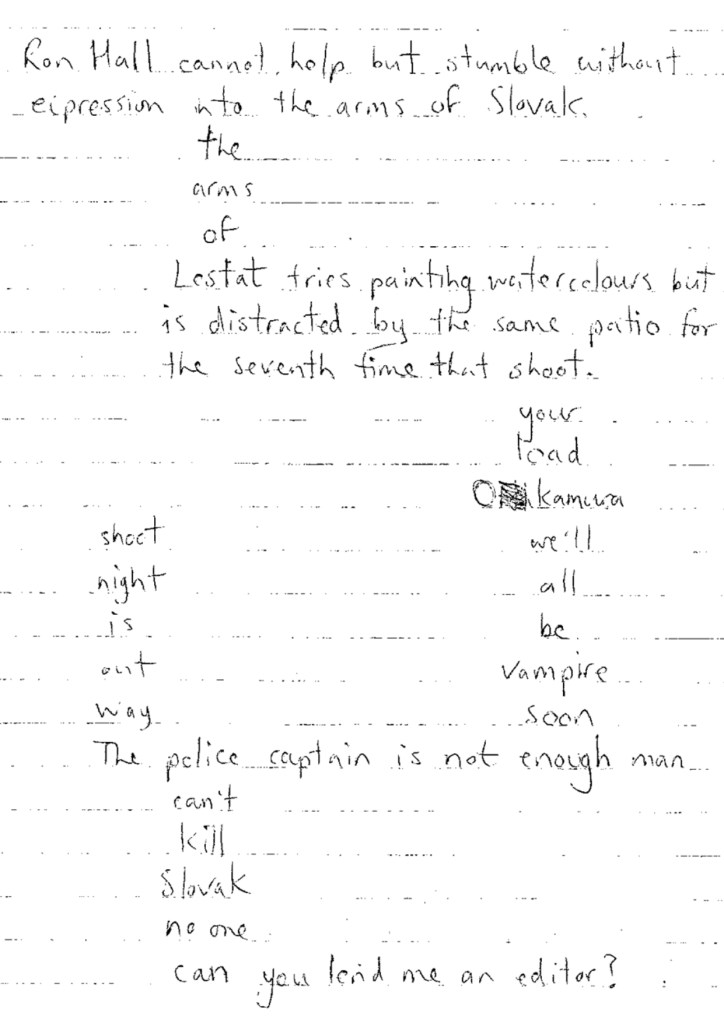 Ron Hall cannot help but stumble without
eipression into the arms of Slovak.
the
arms
of
Lestat tries painting watercolours but
is distracted by the same patio for
the seventh time that shoot.
your
load
kamura
shoot we'll
night all
is be
out vampire
way soon
The police captain is not enough man
can't
kill
Slovak
no one
can you lend me an editor?